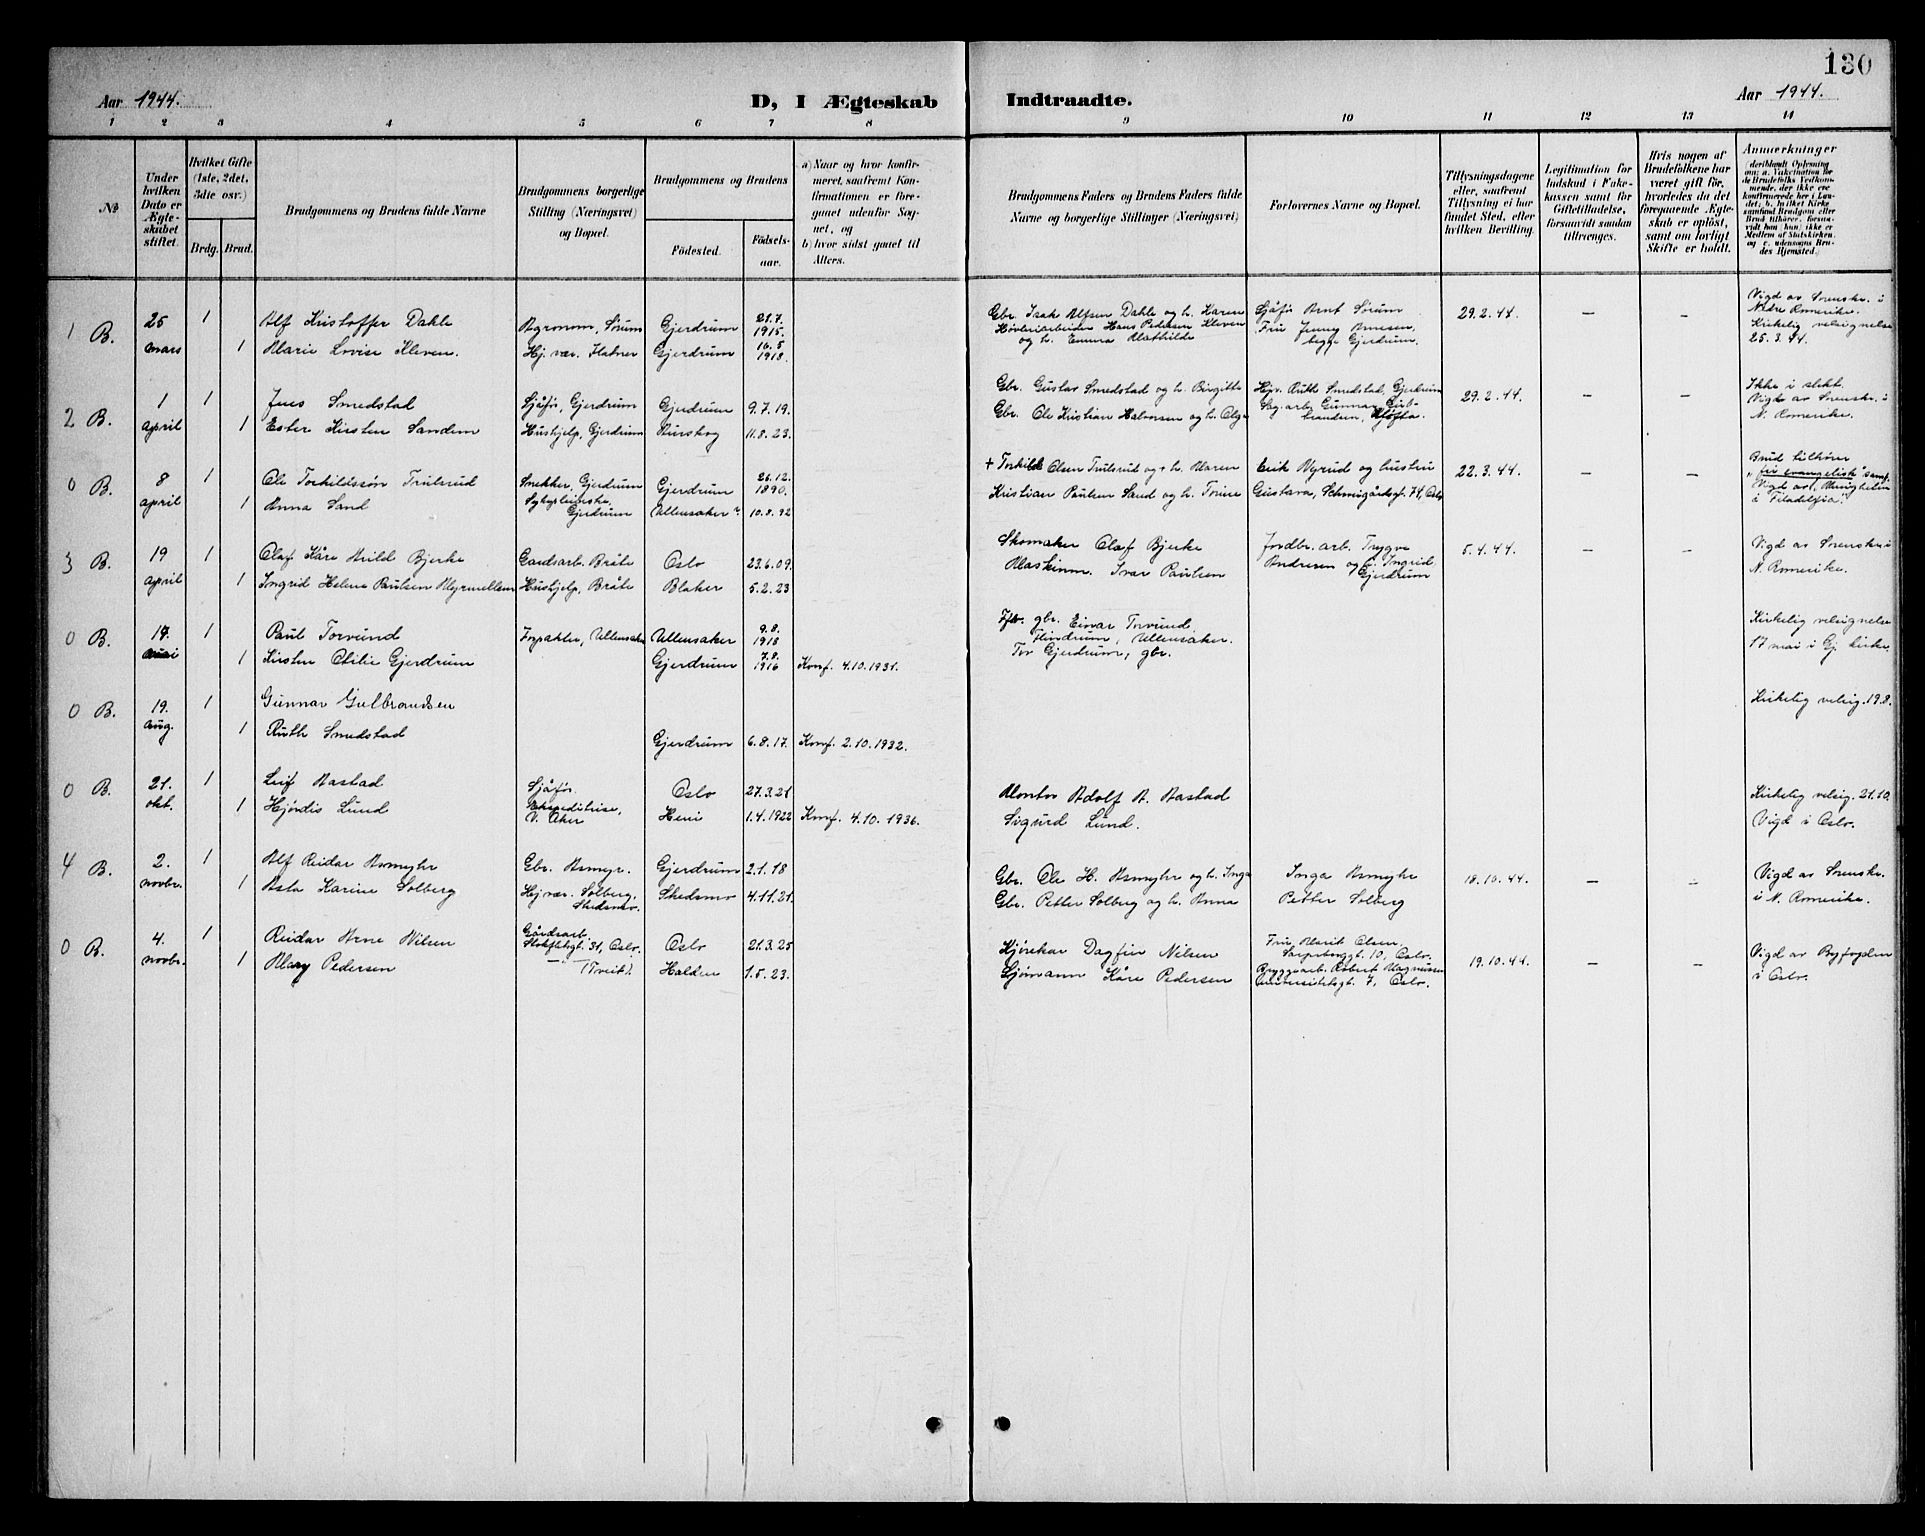 130
Aar 1944.
D, I Ægteskab Indtraadte.
Aar 1944.
1 2 3 4 5 6 7 8 9 10 11 12 13 14
№
Under hvilken Dato er Ægteskabet stiftet.
Hvilket Gifte (1ste, 2det, 3die osv.)
Brdg. Brud.
Brudgommens og Brudens fulde Navne
Brudgommens borgerlige Stilling (Næringsvei) og Bopæl.
Brudgommens og Brudens
Fødested. Fødselsaar.
a) Naar og hvor konfirmeret, saafremt Konfirmationen er foregaaet udenfor Sognet, og
b) hvor sidst gaaet til Alters.
Brudgommens Faders og Brudens Faders fulde Navne og borgerlige Stillinger (Næringsvei)
Forlovernes Navne og Bopæl.
Tillysningsdagene eller, saafremt Tillysning ei har fundet Sted, efter hvilken Bevilling.
Legitimation for Indskud i Enkekassen samt for Giftetilladelse, forsaavidt saadan tiltrænges.
Hvis nogen af Brudefolkene har været gift før, hvorledes da det foregaaende Ægteskab er opløst, samt om lovligt Skifte er holdt.
Anmærkninger
(deriblandt Oplysning om: a. Vakcination for de Brudefolks Vedkommende, der ikke ere konfirmerede her i Landet; b. hvilket Kirkesamfund Brudgom eller Brud tilhører, forsaavidt han (hun) ikke er Medlem af Statskirken, og c. udensogns Brudes Hjemsted.)
1 B. 25 mars 1
Alf Kristoffer Dahle Agronom, Sørum Gjerdrum 21.7. 1915.
1 Marie Lovise Kleven. Hj. vær. Flatner Gjerdrum 16.5 1918.
Gbr. Isak Alfsen Dahle og h. Karen
Høvleriarbeider Hans Pedersen Kleven
og h. Emma Mathilde
Sjåfør Arnt Sørum
Fru Jenny Arnesen,
begge Gjerdrum.
29.2.44. — —
Vigd av Sorenskr. i
Nedre Romerike.
Kirkelig velsignelse
25.3.44.
2 B. 1 april 1
Jens Smedstad Sjåfør, Gjerdrum Gjerdrum 9.7.19.
1 Ester Kirsten Sandem Hushjelp, Gjerdrum Aurskog 11.8.23.
Gbr. Gustav Smedstad og h. Birgitte
Gbr. Ole Kristian Halvorsen og h. Olga
Hjv. Ruth Smedstad, Gjerdrum
Sag.arb. Gunnar Gulbrandsen, Kløfta.
29.2.44. — —
Ikke i slekt.
Vigd av Sorenskr. i
N. Romerike.
0 B. 8 april 1
Ole Torkildssøn Trulsrud Snekker, Gjerdrum Gjerdrum 26.12. 1890.
1 Anna Sand Sykepleierske, Gjerdrum Ullensaker 10.8.92
+ Torkild Olsen Trulsrud og + h. Maren
Kristian Paulsen Sand og h. Trine
Erik Myrud og hustru
Gustava, Schweigårdsgt. 74, Oslo
22.3.44. — —
Brud tilhører
"fri evangelisk" samf.
Vigd av "Menigheten
i Filadelfia".
3 B. 19 april 1
Olaf Kåre Arild Bjerke Gardsarb. Bråte Oslo 23.6.09.
1 Ingrid Helene Paulsen Myrmellem Hushjelp, Bråte Blaker 5.2.23
Skomaker Olaf Bjerke
Maskinm. Ivar Paulsen
Jordbr. arb. Trygve
Andresen og h. Ingrid
Gjerdrum
5.4.44. — —
Vigd av Sorenskr. i
N. Romerike.
0 B. 17. mai 1
Paul Torvund Forpakter, Ullensaker Ullensaker 9.8. 1918
1 Kirsten Otilie Gjerdrum Gjerdrum 7.8. 1916 Konf. 4.10.1931.
gbr. Einar Torvund
Flindrum, Ullensaker.
Tor Gjerdrum, gbr.
Kirkelig velsignelse
17 mai i Gj. kirke.
0 B. 19. aug. 1
Gunnar Gulbrandsen
1 Ruth Smedstad Gjerdrum 6.8.17. Konf. 2.10.1932.
Kirkelig velsig. 19.8.
0 B. 21. okt. 1
Leif Aastad Sjåfør Oslo 27.3.21
1 Hjørdis Lund Ekspeditrise, V. Aker Heni 1.4.1922 Konf. 4.10.1936.
Montør Adolf A. Aastad
Sigurd Lund.
Kirkelig velsig. 21.10.
Vigd i Oslo.
4 B. 2. novbr. 1
Alf Reidar Asmyhr Gbr. Asmyr. Gjerdrum 2.1.18
1 Asta Karine Solberg Hj.vær. Solberg, Skedsmo. Skedsmo 4.11.21.
Gbr. Ole H. Asmyhr og h. Inga
Gbr. Petter Solberg og h. Anna
Inga Asmyhr
Petter Solberg
18.10.44. — —
Vigd av Sorenskr.
i N. Romerike.
0 B. 4. novbr. 1
Reidar Arne Nilsen Gårdsarb. 31, Oslo. Oslo 21.3.25
1 Mary Pedersen — (Tveit). Halden 1.5.23.
Kjørekar Dagfin Nilsen
Sjømann Kåre Pedersen
Fru Marit Olsen,
Sarpsborggt. 10, Oslo.
Bryggearb. Robert Magnussen
Universitetsgt. 7, Oslo.
19.10.44. — —
Vigd av Byfogden
i Oslo.